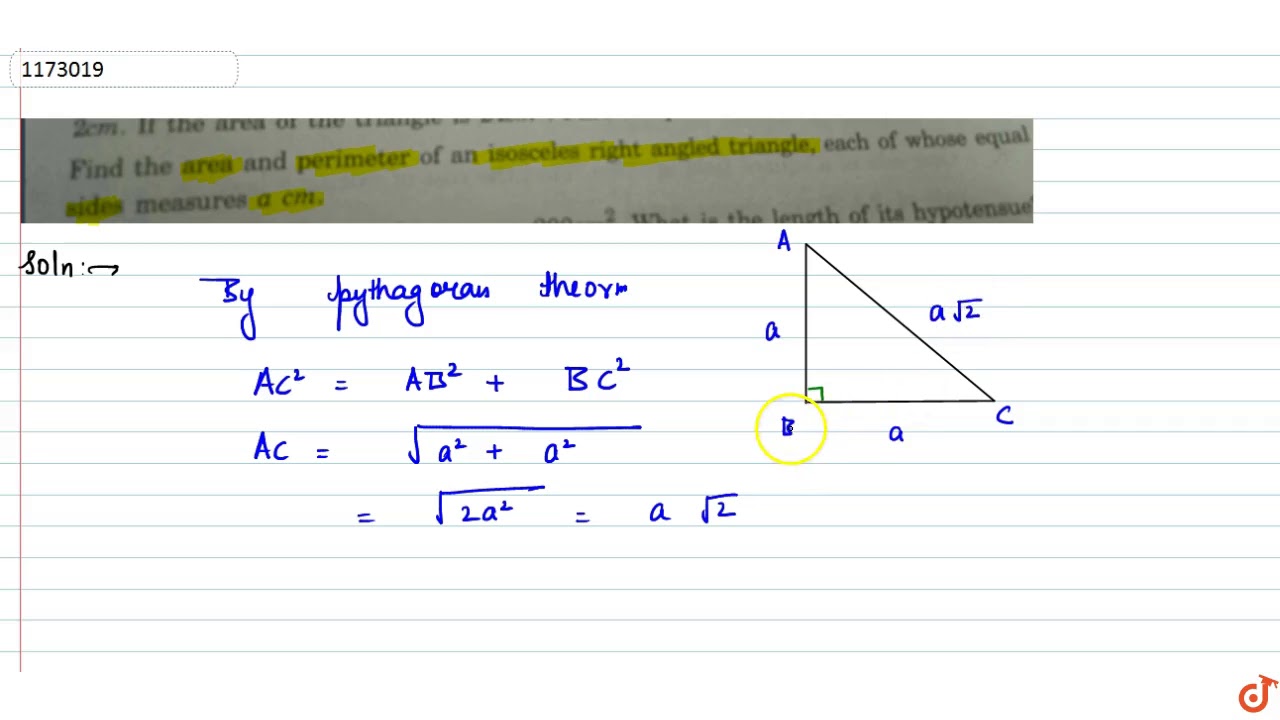 1173019
2cm. If the area of the triangle is
Find the area and perimeter of an isosceles right angled triangle, each of whose equal
sides measures a cm.
cm². What is the length of its hypotensue
Soln:→
By pythagoran theorm
AC² = AB² + BC²
AC = √a² + a²
= √2a² = a √2
A
a
a√2
B
a
C